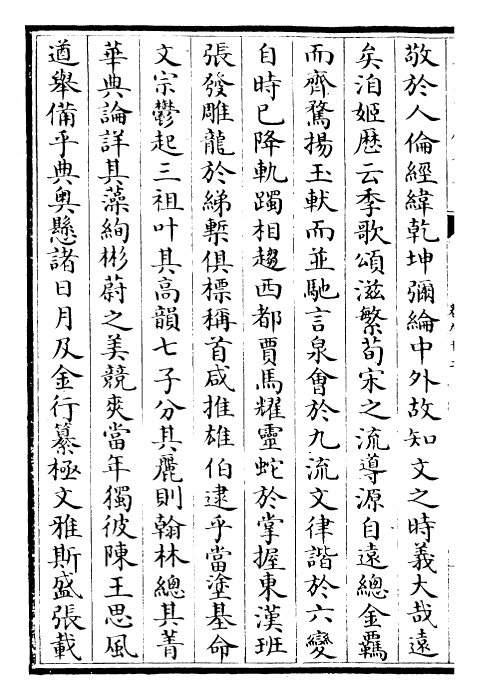 敬於人倫經緯乾坤彌綸中外故知文之時義大哉遠
矣洎姬厯云季歌頌滋繁荀宋之流導源自遠總金羈
而齊騖揚玉軑而並馳言泉會於九流文律諧於六變
自時已降軌躅相趨西都賈馬耀靈蛇於掌握東漢班
張發雕龍於綈槧俱標稱首咸推雄伯逮乎當塗基命
文宗鬱起三祖叶其高韻七子分其麗則翰林總其菁
華典論詳其藻絢彬蔚之美競爽當年獨彼陳王思風
遒舉備乎典奧懸諸日月及金行纂極文雅斯盛張載